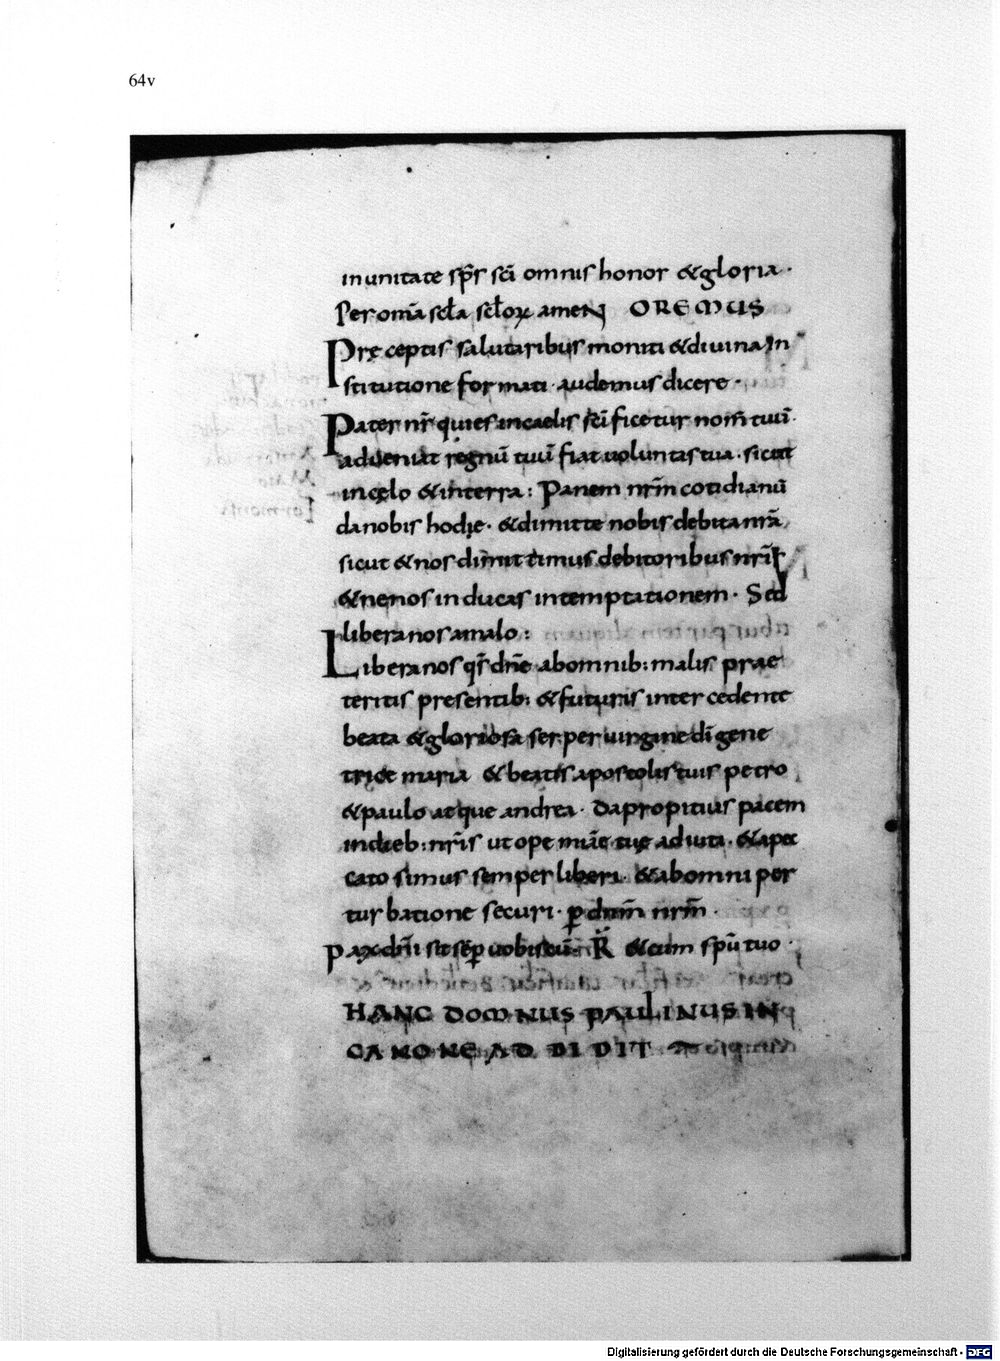 64v
in unitate sp̄s sc̄i omnis honor & gloria ·
Per om̄a scł̄a scł̄oꝝ ameN OREMUS
Pręceptis salutaribus moniti & divina In
stitutione formati · audemus dicere ·
Pater nr̄ qui es in caelis sc̄ificetur nom̄ tuū ·
adueniat regnū tuū fiat uoluntas tua · sicut
in cęlo & in terra : Panem nr̄m cotidianū
da nobis hodie · & dimitte nobis debita nr̄a
sicut & nos dimittimus debitoribus nr̄is
& ne nos inducas in temptationem · Sed
libera nos a malo :
Libera nos qs̄ dn̄e ab omnib: malis prae
teritis presentib: & futuris intercedente
beata & gloriosa semper uirgine dī gene
trice maria & beatis apostolis tuis petro
& paulo atque andrea · da propitius pacem
in dieb: nr̄is ut ope mīae tuę adiuti · & a pec
cato simus semper liberi · & ab omni per
turbatione securi · ꝑ dn̄m nr̄m ·
Pax dn̄i sit sēp uobiscū · R̄ & cum spū tuo ·
HANC DOMNUS PAULINUS IN
CANONE ADDIDIT
Digitalisierung gefördert durch die Deutsche Forschungsgemeinschaft - DFG